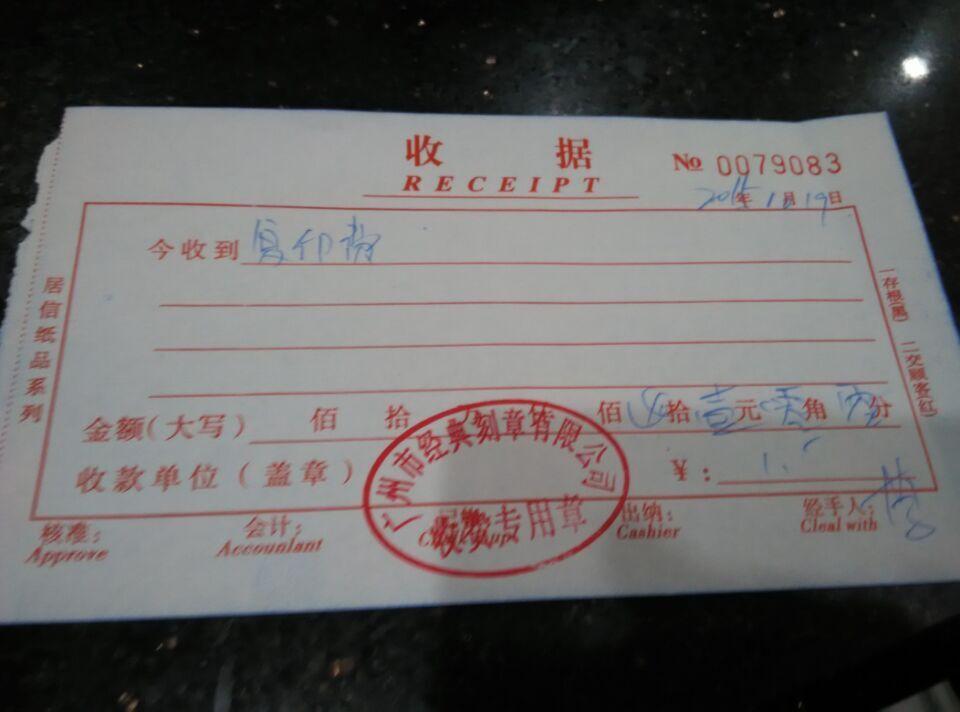 收 据
RECEIPT
№ 0079083
年1月19日
今收到 复印费
金额(大写) 佰 拾 佰 拾壹元零角 分
收款单位(盖章) ¥:1.
广州市经典刻章有限公司
收费专用章
核准: 会计: 出纳: 经手人:
Approve Accountant Cashier Cleal with
居信纸品系列
一存根(黑) 二交顾客(红)